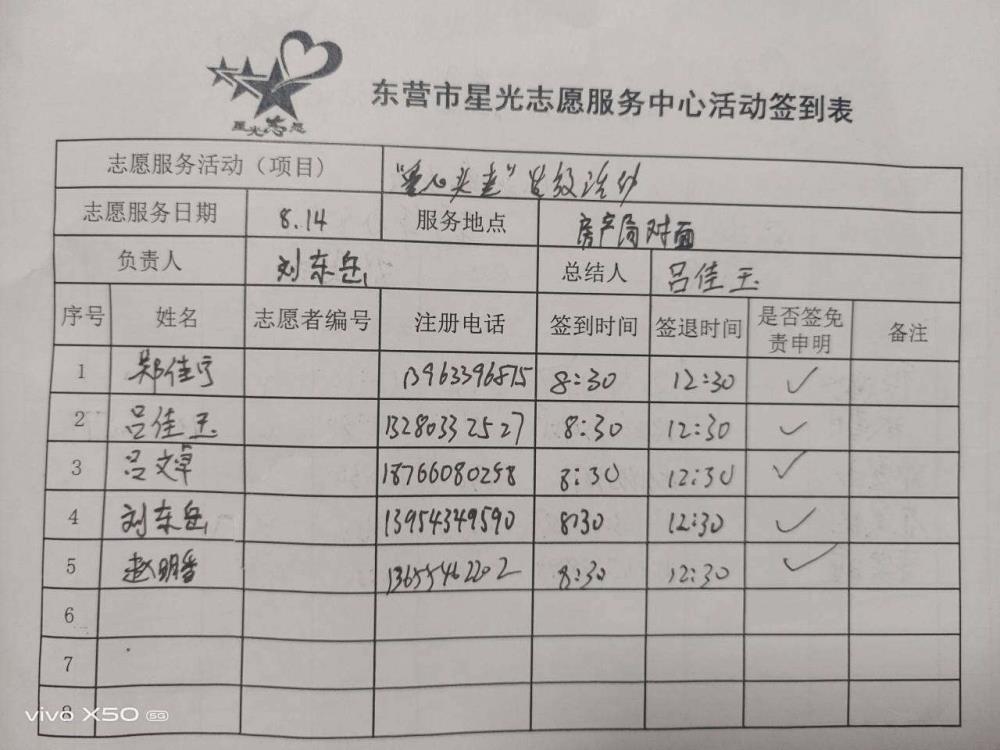 星光志愿
东营市星光志愿服务中心活动签到表
志愿服务活动（项目） “爱心头盔”发放活动
志愿服务日期 8.14 服务地点 房产局对面
负责人 刘东岳 总结人 吕佳玉
序号 姓名 志愿者编号 注册电话 签到时间 签退时间 是否签免责申明 备注
1 郑佳宁 13963396875 8:30 12:30 ✓
2 吕佳玉 13280332527 8:30 12:30 ✓
3 吕文卓 18766080258 8:30 12:30 ✓
4 刘东岳 13954349590 8:30 12:30 ✓
5 赵明香 13655462202 8:30 12:30 ✓
6
7
8
vivo X50 5G